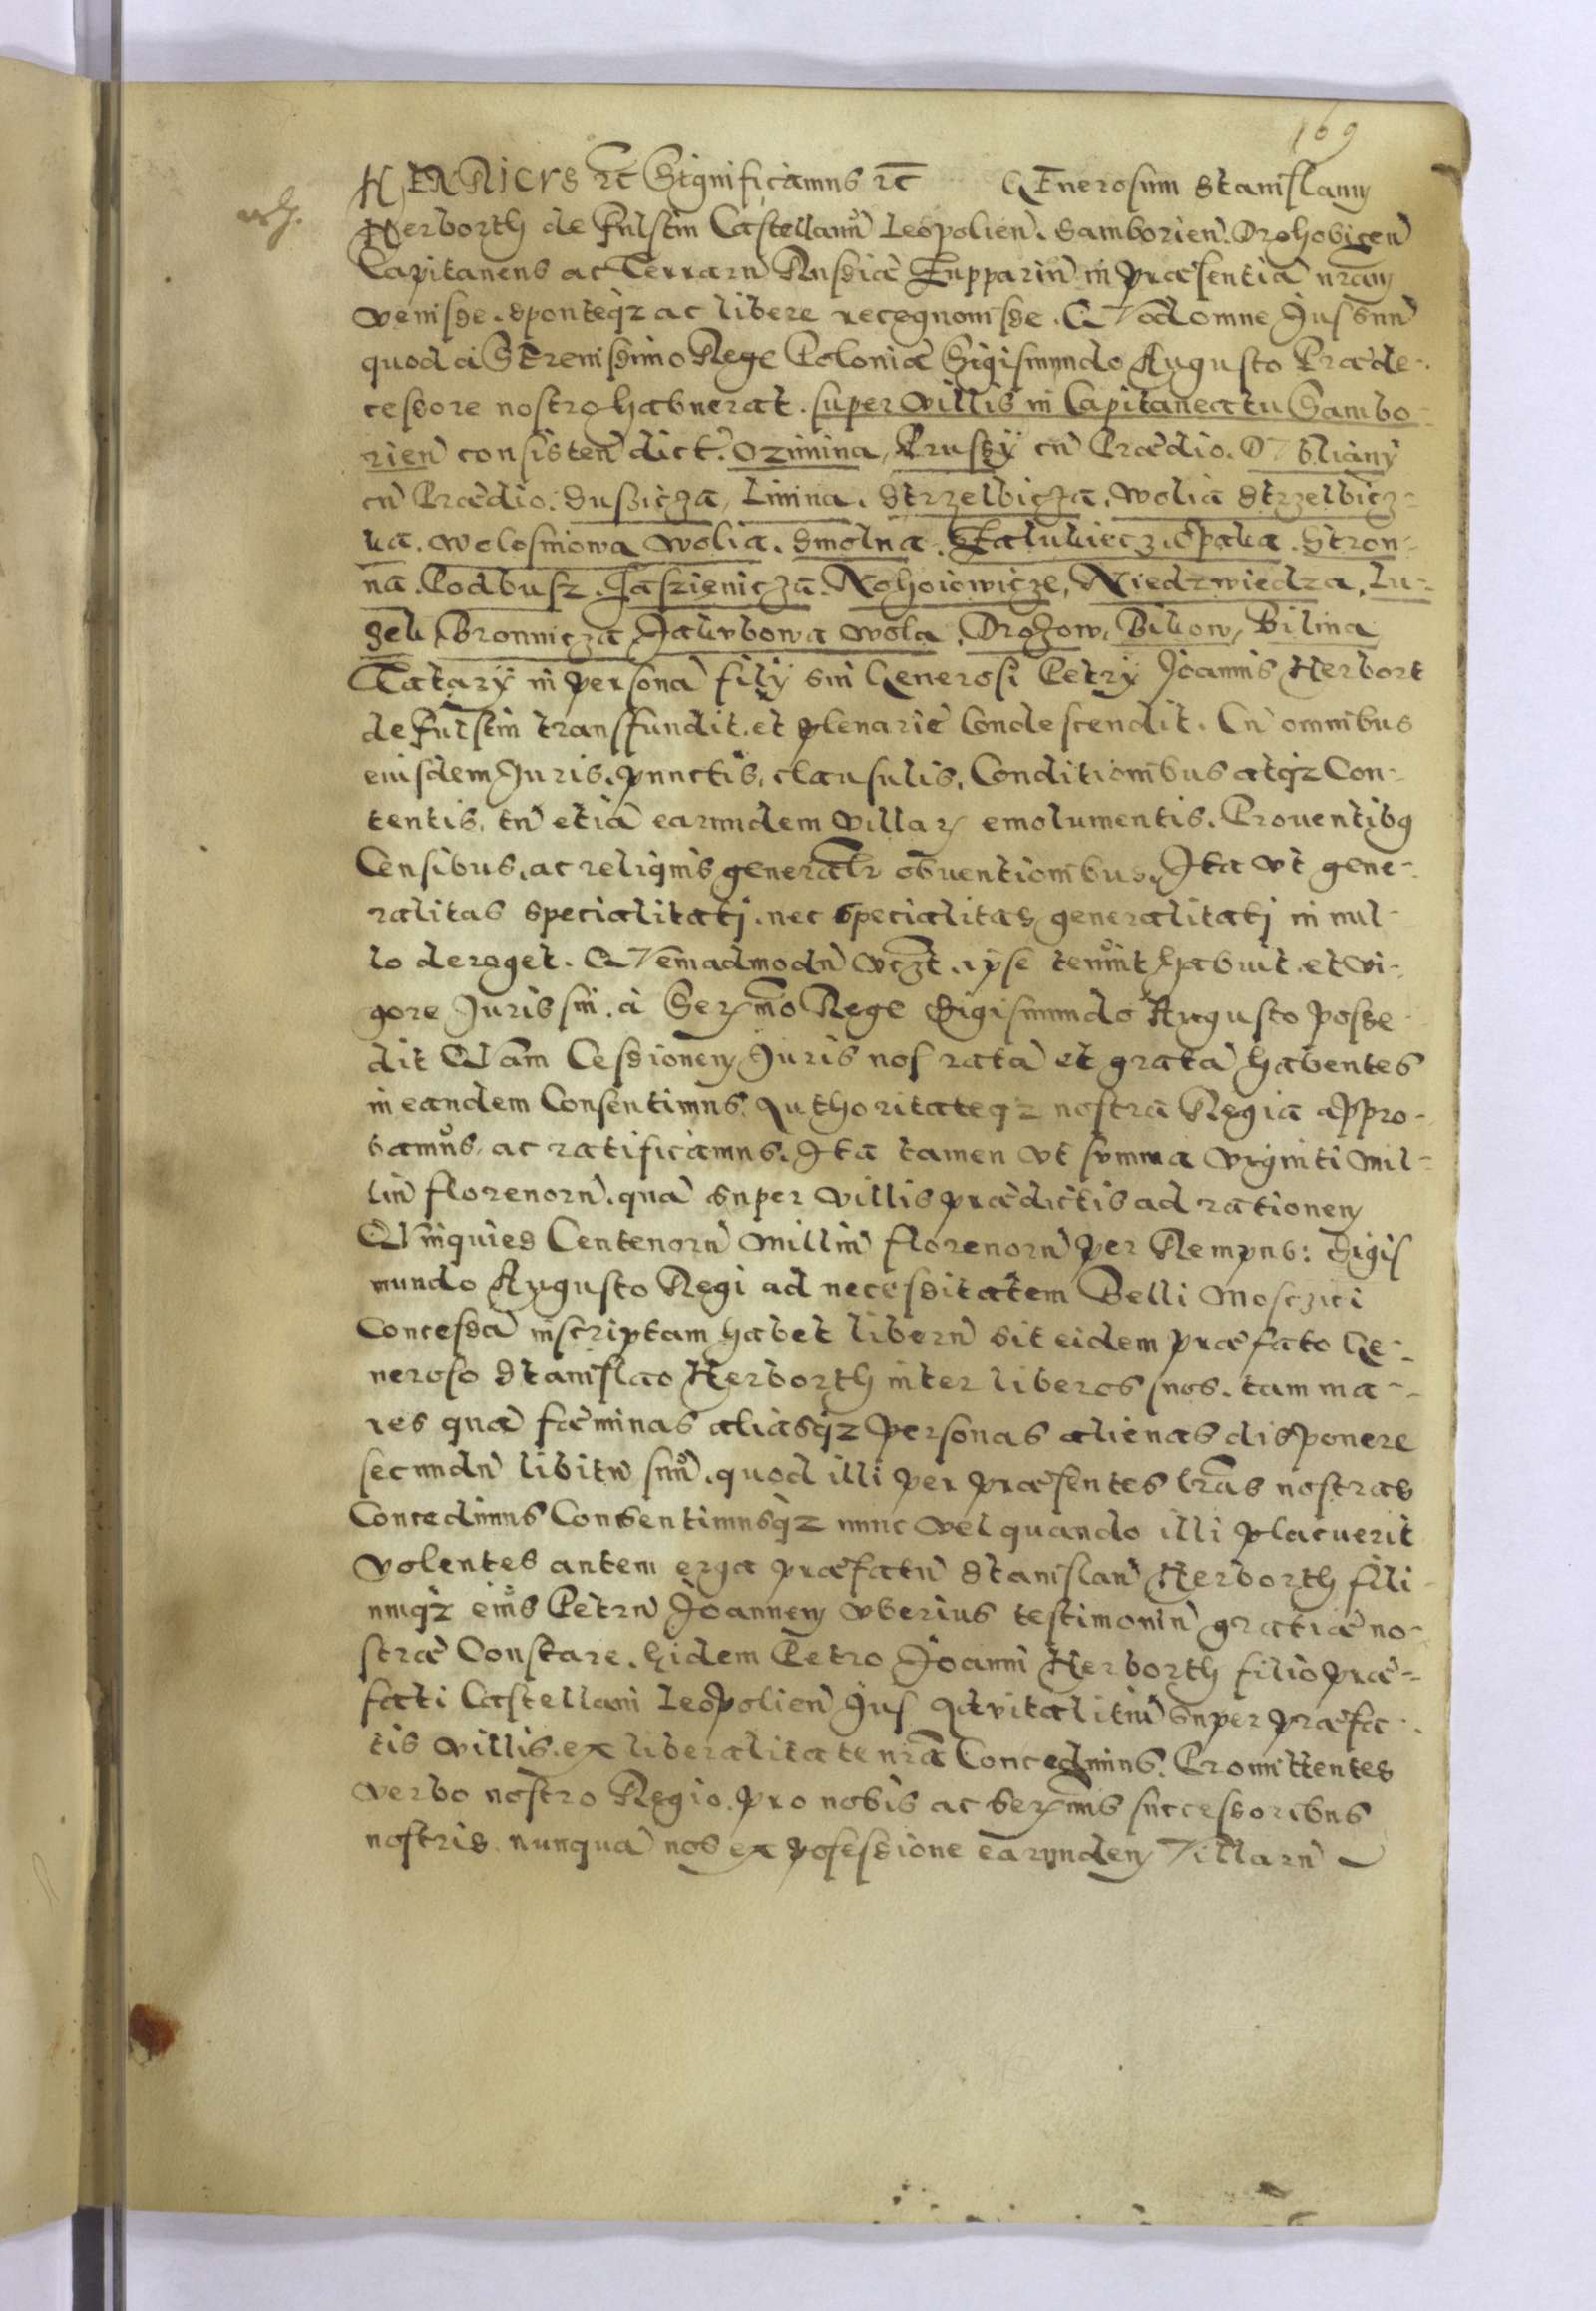 169
HENRICVS etc Significamus etc GEnerosum Stanislaum
Herborth de Fulstin Castellanũ Leopolien. Samborien. Drohobicen̄
Capitaneus ac Terrarũ Russiæ Zuppariũ in præsentiā nr̄am
venisse. sponteqz ac libere recognouisse. QVod omne Jus suũ
quod à SErenissimo Rege Poloniæ Sigismundo Augusto Præde-
cessore nostro habuerat. super villis in Capitaneatu Sambo-
rien̄ consisten̄ dict. Ozimina, Prussy cũ Prædio. DVbliany
cũ Prædio. Susicza, Linina. Strzelbicza. Wolia Strzelbicz-
ka. Wolosinowa Wolia. Smolna. Zalukiecz. Opaka. Stron-
na. Podbusz. Jaszienicza. Nohoiowicze, Niedzwiedza, Lu-
zek, Bronnicza, Jakubowa Wola, Drozow, Bikow, Bilina
Tatary in personā filÿ sui Generosi Petry Joannis Herbort
de Fulstin transfundit. et plenariè Condescendit. Cũ omnibus
eiusdem Juris. punctis, clausulis, Conditionibus atqz Con-
tentis, tũ etiā earundem villarꝝ emolumentis. Prouentibꝰ
Censibus, ac reliquis generalr̄ obuentionibus. Ita vt gene-
ralitas specialitati. nec specialitas generalitati in nul-
lo deroget. QVemadmodũ vczt. ipse tenuit habuit et vi-
gore Juris sui. à Serꝝmo Rege Sigismundo Augusto posse
dit QVam Cessionem Juris nos ratā et gratā habentes
in eandem Consentimus. Authoritateqz nostra Regia appro-
bamus, ac ratificamus. Ita tamen vt summa viginti Mil-
liũ florenorũ. quā super villis prædictis ad rationem
QVinquies Centenorũ Milliũ florenorũ per Rempub: Sigis
mundo Augusto Regi ad necessitatem Belli Mosczici
Concessā inscriptam habet liberũ sit eidem præfato Ge-
neroso Stanislao Herborth inter liberos suos. tam ma-
res quā fæminas aliasqz personas alienas disponere
secundũ libitũ suũ. quod illi per præsentes lr̄as nostras
Concedimus Consentimusqz nunc vel quando illi placuerit
Volentes autem erga præfatũ Stanislaũ Herborth fili-
umqz eius Petrũ Joannem vberius testimoniũ gratiæ no-
stræ Constare. Eidem Petro Joanni Herborth filio præ-
fati Castellani Leopolien̄ Jus aduitalitiũ super præfa-
tis villis. ex liberalitate nr̄a Concedimus. Promittentes
verbo nostro Regio. pro nobis ac Serꝝmis successoribus
nostris. nunquā nos ex possessione earundem Villarũ